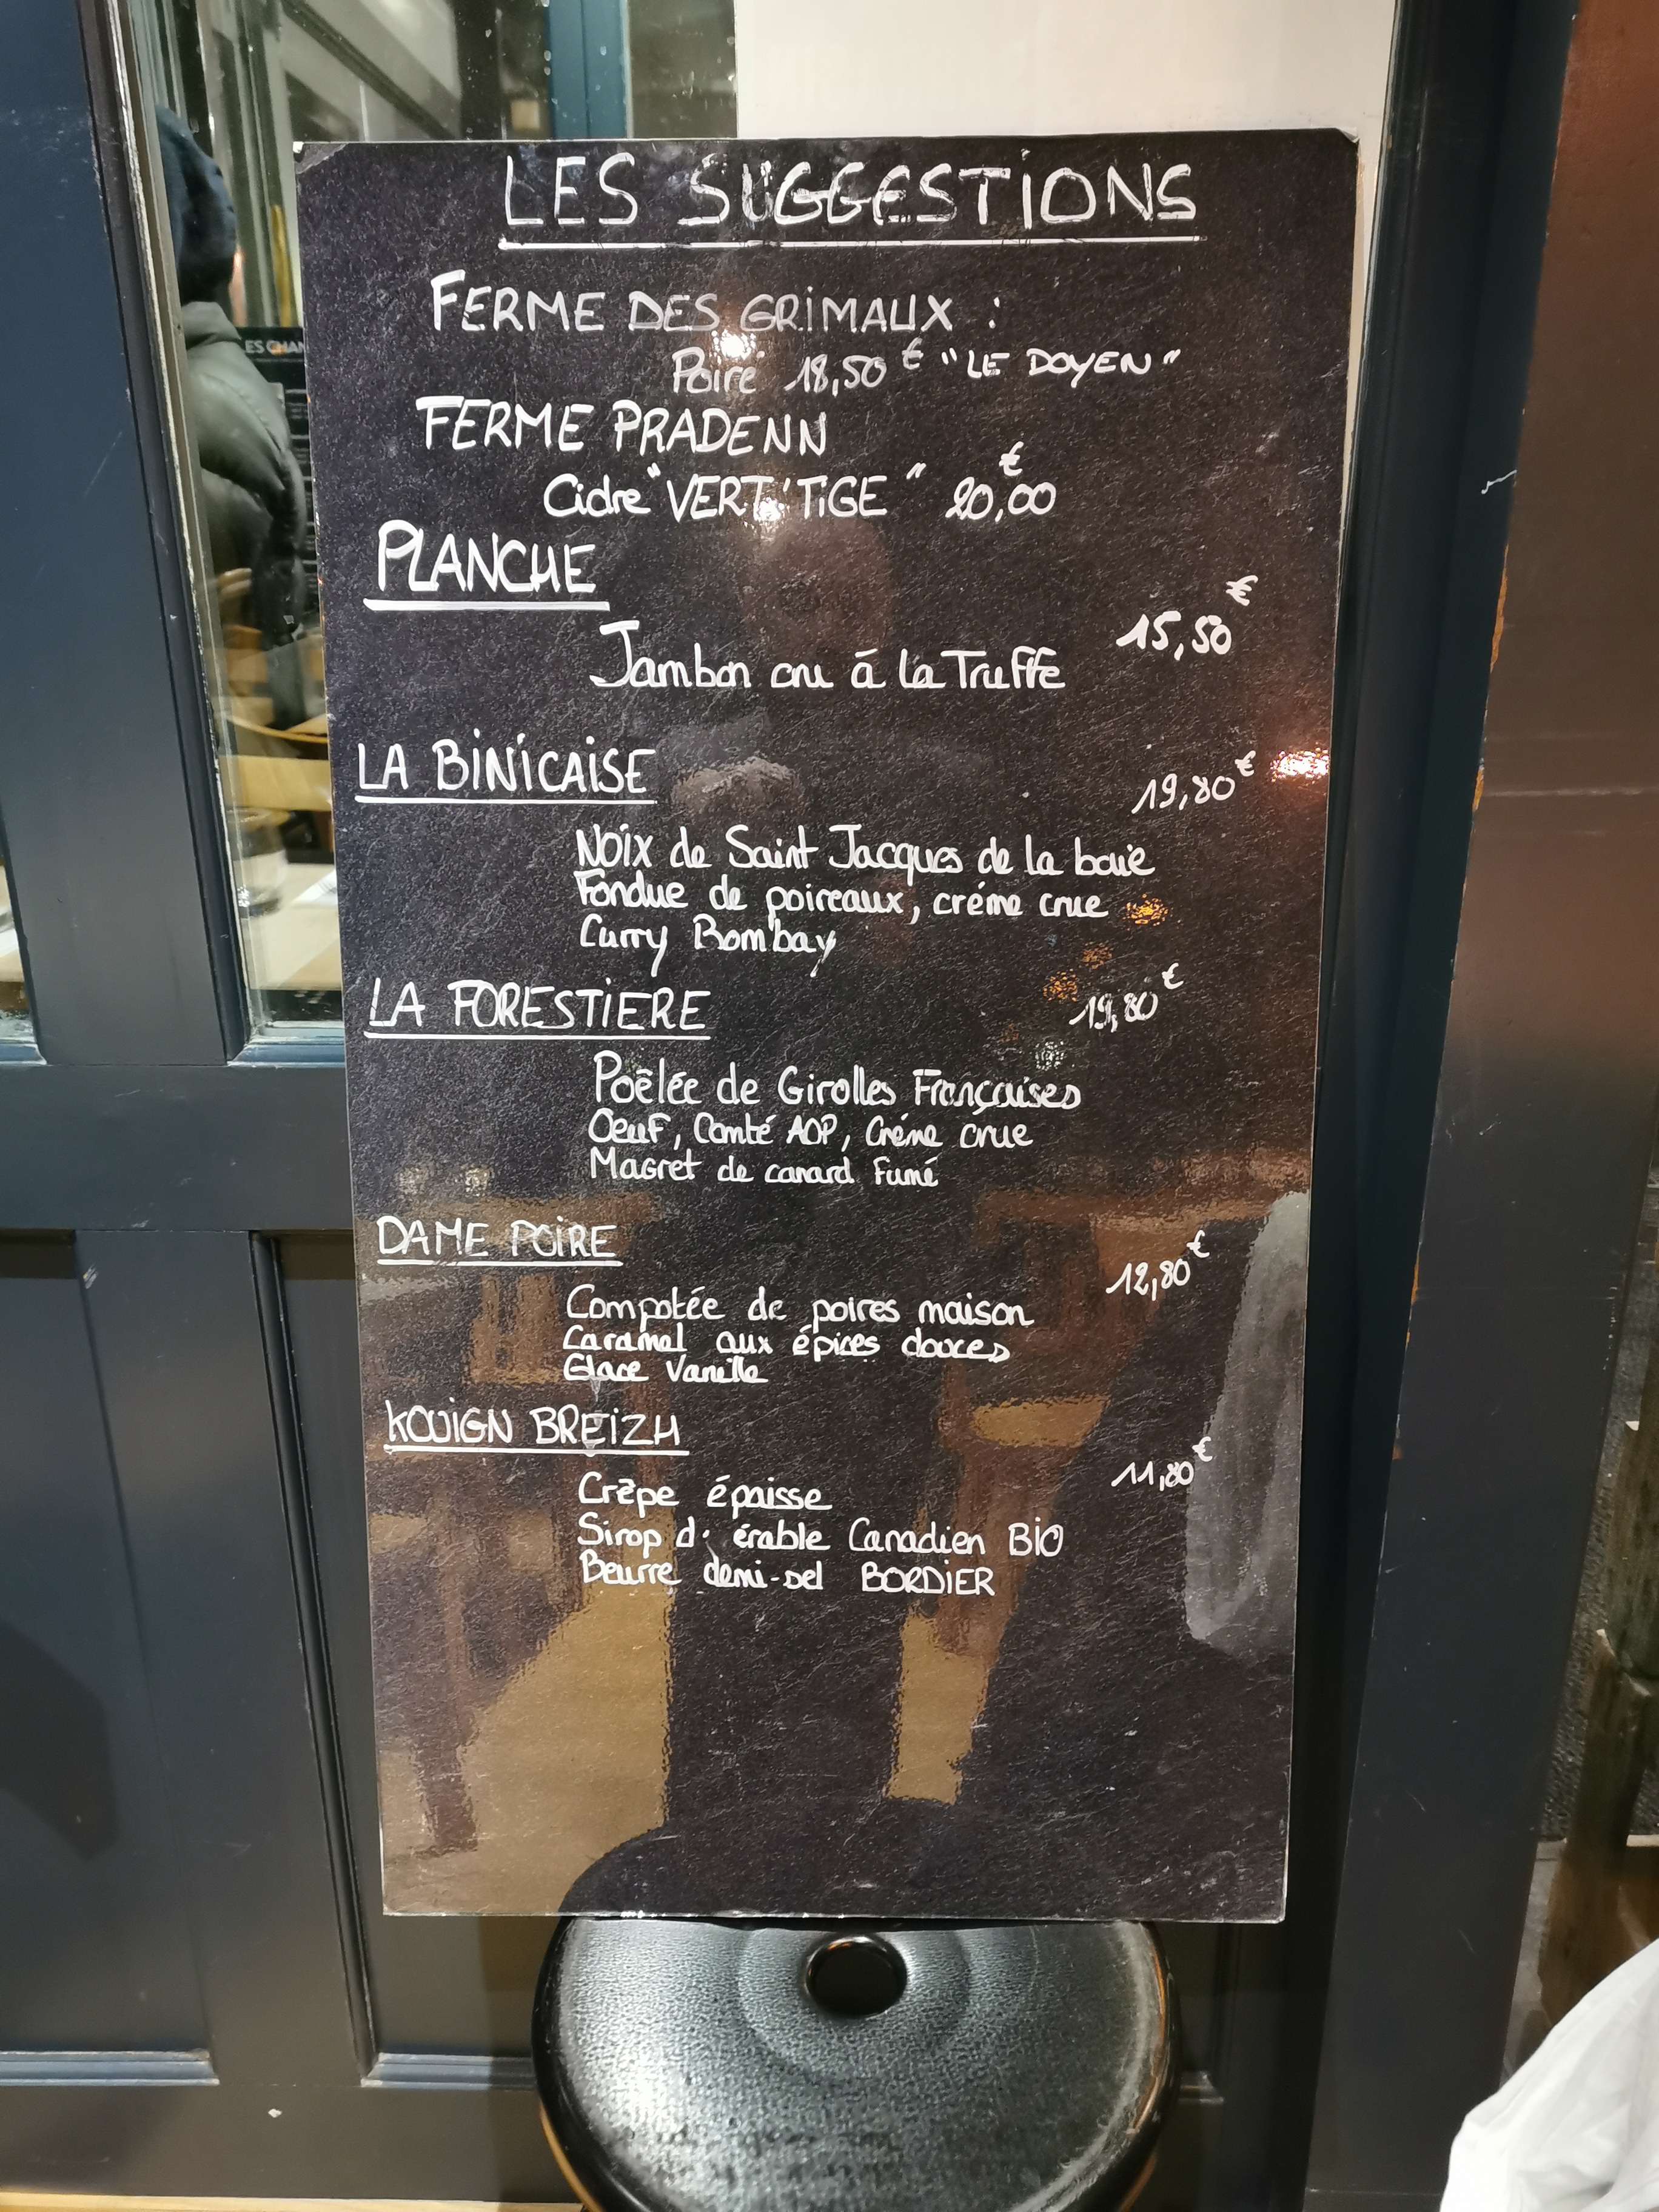 LES SUGGESTIONS
FERME DES GRIMAUX :
Poiré 18,50 € "LE DOYEN"
FERME PRADENN
Cidre "VERT'TIGE" 20,00 €
PLANCHE
15,50 €
Jambon cru à la Truffe
LA BINICAISE
19,80 €
Noix de Saint Jacques de la baie
Fondue de poireaux, créme crue
Curry Bombay
LA FORESTIERE
19,80 €
Poêlée de Girolles Françaises
Oeuf, Comté AOP, Créme crue
Magret de canard Fumé
DAME POIRE
12,80 €
Compotée de poires maison
Caramel aux épices douces
Glace Vanille
KOUIGN BREIZH
11,80 €
Crêpe épaisse
Sirop d' érable Canadien BIO
Beurre demi-sel BORDIER